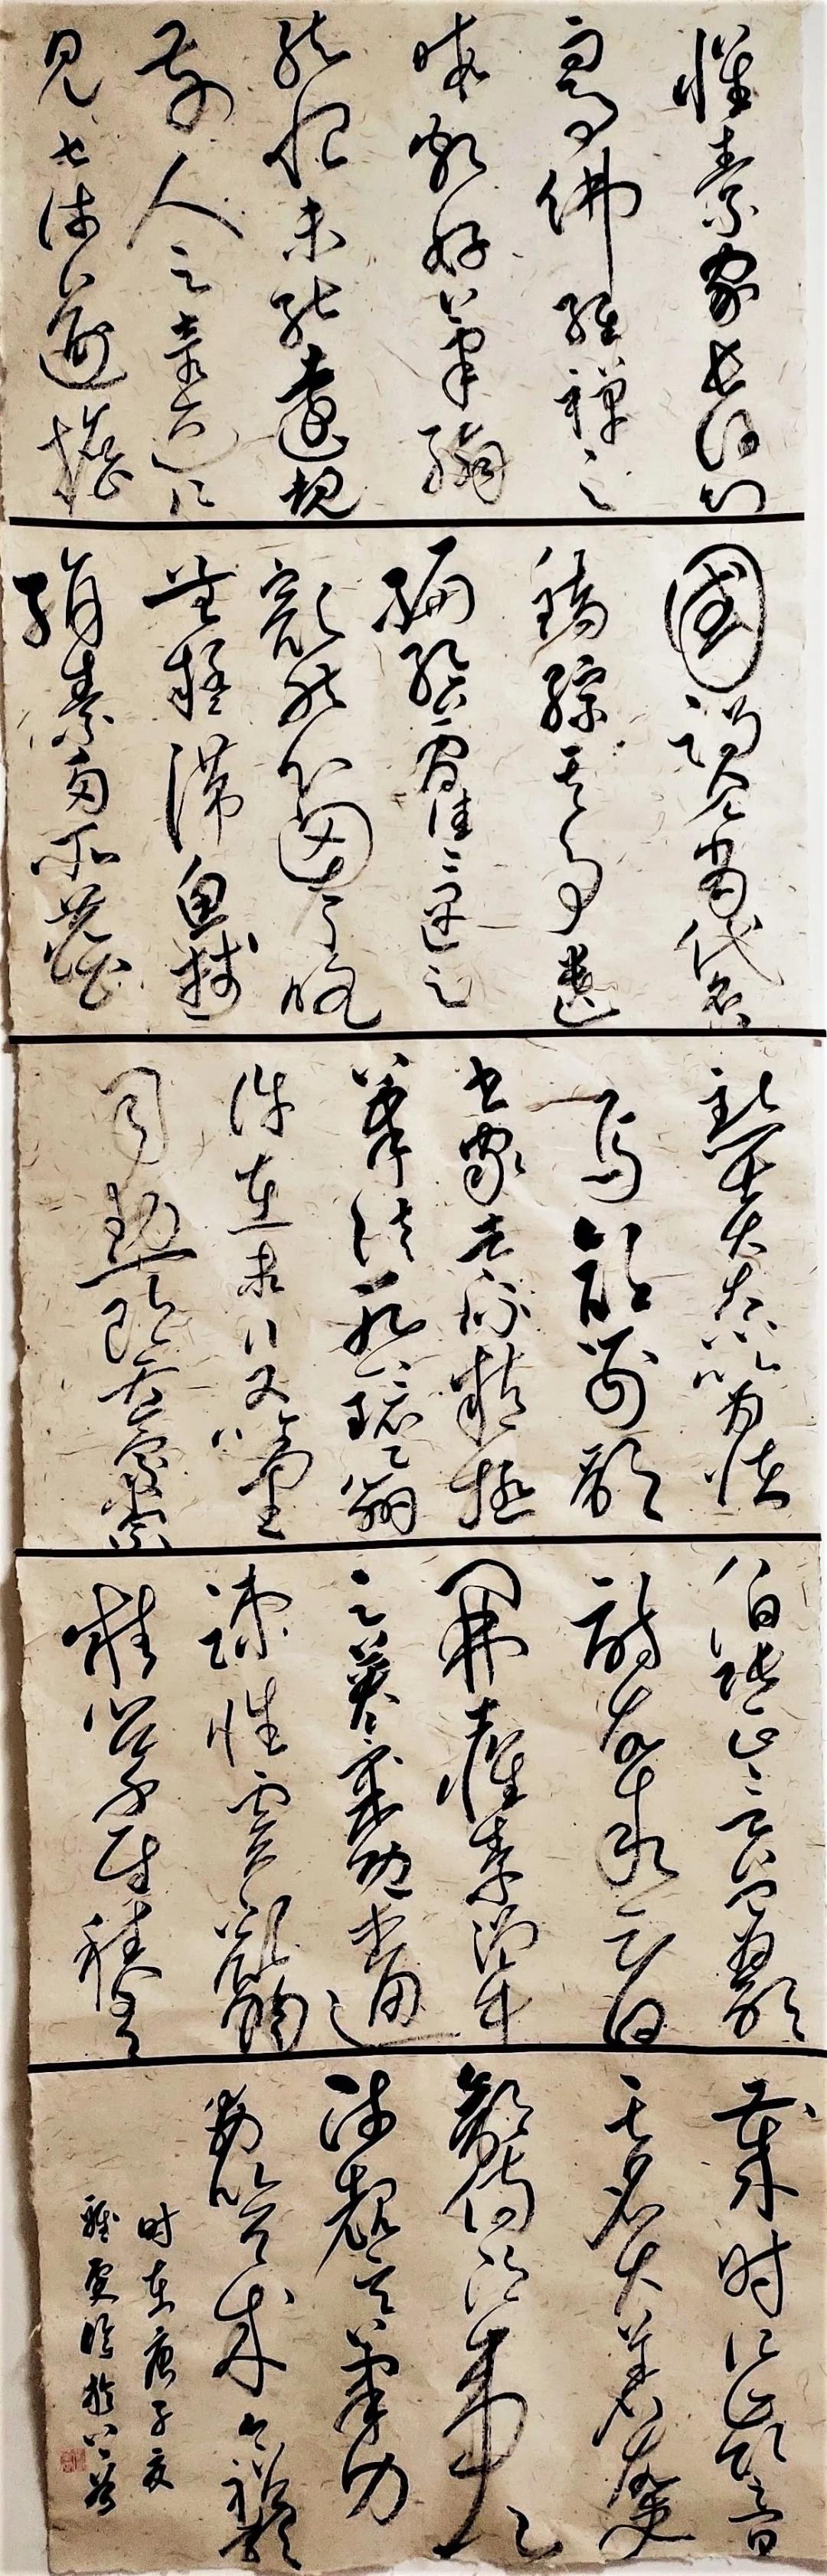 懷素家長沙幼
而事佛經禪之
暇頗好筆翰
然恨未能遠覩
前人之奇迹所
見甚淺遂擔
國謁見當代名公
錯綜其事遺
編絕簡往往遇之
豁然心胸略
無疑滯魚牋
絹素多所塵
點士大夫不以為怪
焉顏刑部
書家者流精極
筆法水鏡之辯
許在末行又以尚書
司勳郎盧象小宗
伯張正言曾為歌
詩故敘之曰
開士懷素僧中
之英氣概通
疎性靈豁暢
精心草聖積有
歲時江嶺之間
其名大著故吏
部侍郎韋公
陟覩其筆力
勗以有成今禮部
时在庚子夏
臨於